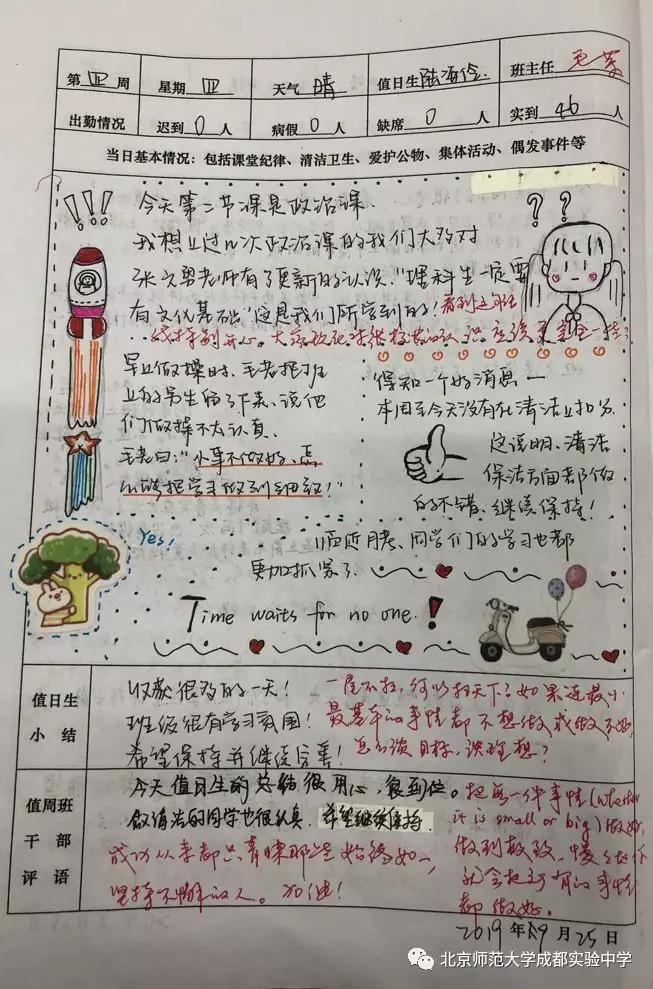 第四周 星期四 天气 晴 值日生 陆海伶 班主任
出勤情况 迟到 0 人 病假 0 人 缺席 0 人 实到 46 人
当日基本情况：包括课堂纪律、清洁卫生、爱护公物、集体活动、偶发事件等
!!!
? ?
今天第二节课是政治课.
我想上过几次政治课的我们大多对
张文勇老师有了更新的认识."理科生一定要
有文化基础"这是我们所学到的!
早上做操时、毛老把班
上的男生留了下来、说他
们做操不太认真.
毛老曰:"小事不做好、怎
么能把学习做到细致!"
得知一个好消息一
本周至今天没有在清洁上扣分.
这说明、清洁
保洁方面都做
的不错、继续保持!
Yes!
临近月考、同学们的学习也都
更加抓紧了.
Time waits for no one.!
值日生
小结
收获很多的一天!
班级很有学习氛围!
希望保持并继续完善!
一屋不扫，何以扫天下？如果连最小
最基本的事情都不想做或做不好，
怎么谈目标，谈理想？
值周班
干部
评语
今天值日生的总结很用心，很到位。
做清洁的同学也很认真. 希望继续保持.
成功从来都只青睐那些始终如一，
坚持不懈的人。加油！
把每一件事情(whether
it is small or big)做好，
做到极致，慢慢地你
就会把所有的事情
都做好。
2019年9月25日
北京师范大学成都实验中学